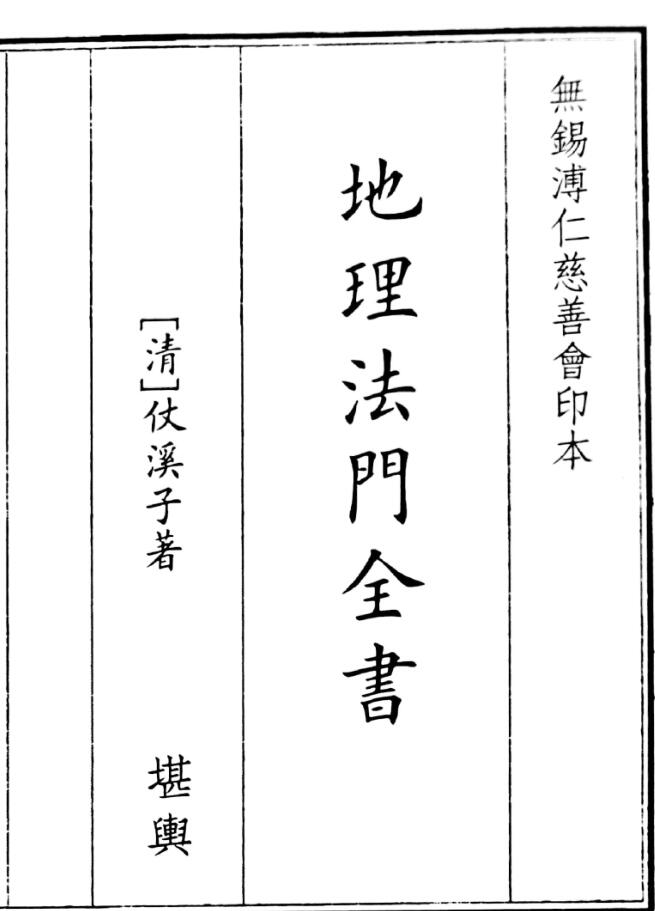 無錫溥仁慈善會印本
地理法門全書
[清]仗溪子著
堪輿